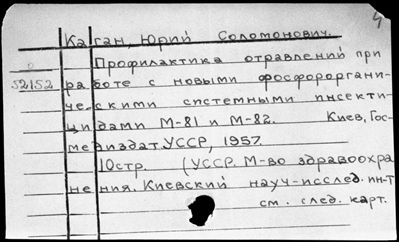 4
Каган, Юрий Соломонович.
Профилактика отравлений при
52152 работе с новыми фосфороргани-
ческими системными инсекти-
цидами М-81 и М-82. Киев, Гос-
медиздат УССР, 1957.
10стр. (УССР. М-во здравоохра
нения. Киевский науч-исслед. ин-т
см. след. карт.